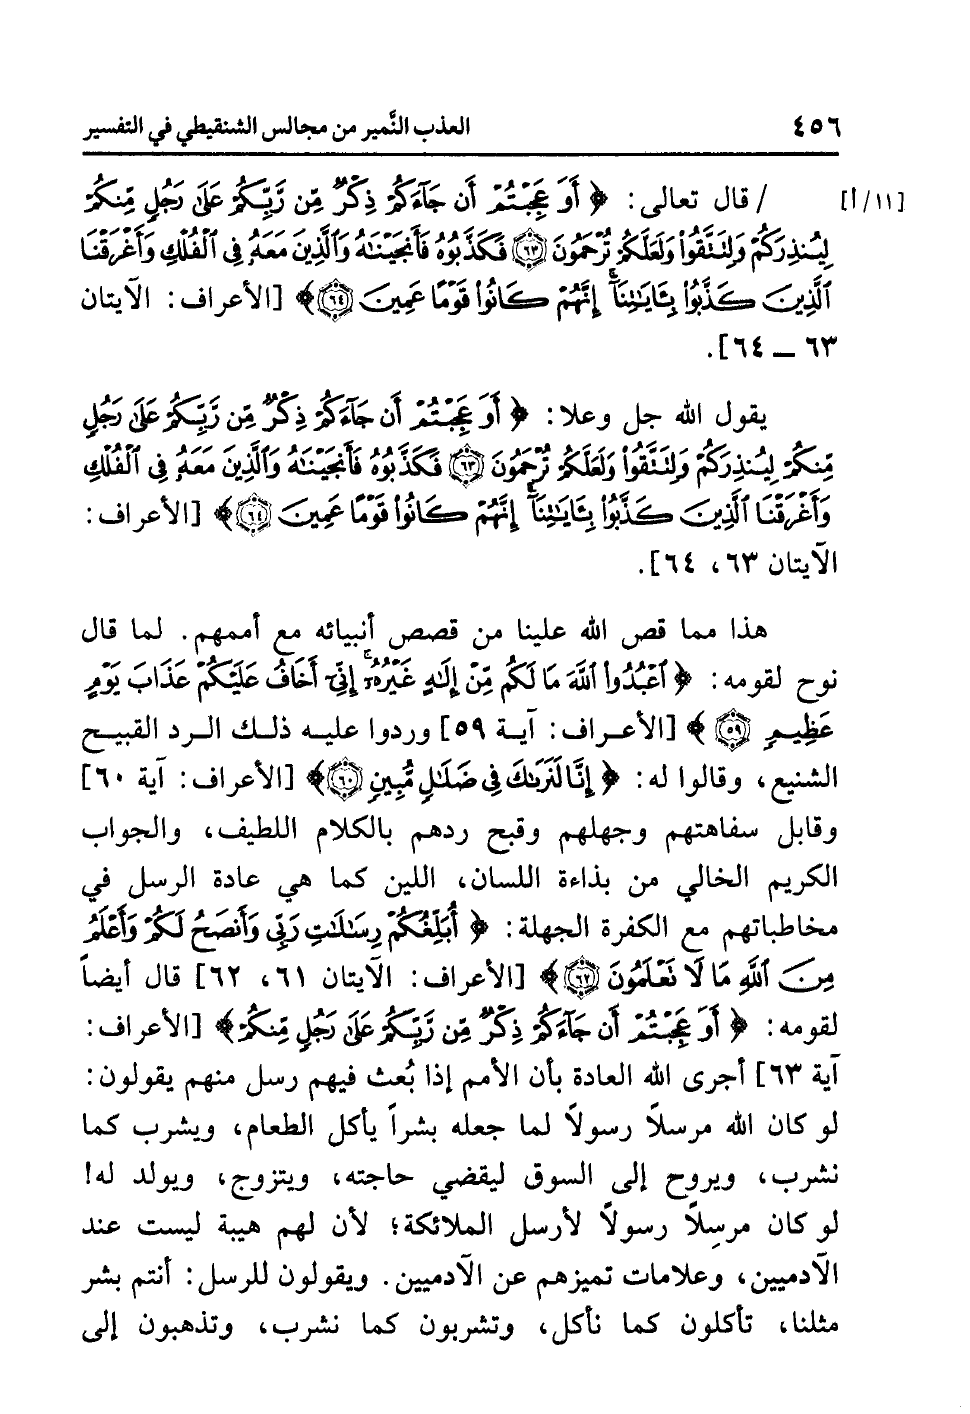 ٤٥٦ العذب النَّمير من مجالس الشنقيطي في التفسير
[١١/أ] / قال تعالى: ﴿ أَوَعَجِبْتُمْ أَن جَآءَكُمْ ذِكْرٌ مِّن رَّبِّكُمْ عَلَىٰ رَجُلٍ مِّنكُمْ
لِيُنذِرَكُمْ وَلِتَتَّقُوا۟ وَلَعَلَّكُمْ تُرْحَمُونَ ﴿٦٣﴾ فَكَذَّبُوهُ فَأَنجَيْنَٰهُ وَٱلَّذِينَ مَعَهُۥ فِى ٱلْفُلْكِ وَأَغْرَقْنَا
ٱلَّذِينَ كَذَّبُوا۟ بِـَٔايَٰتِنَآ ۚ إِنَّهُمْ كَانُوا۟ قَوْمًا عَمِينَ ﴿٦٤﴾ ﴾ [الأعراف: الآيتان
٦٣ ــ ٦٤].
يقول الله جل وعلا: ﴿ أَوَعَجِبْتُمْ أَن جَآءَكُمْ ذِكْرٌ مِّن رَّبِّكُمْ عَلَىٰ رَجُلٍ
مِّنكُمْ لِيُنذِرَكُمْ وَلِتَتَّقُوا۟ وَلَعَلَّكُمْ تُرْحَمُونَ ﴿٦٣﴾ فَكَذَّبُوهُ فَأَنجَيْنَٰهُ وَٱلَّذِينَ مَعَهُۥ فِى ٱلْفُلْكِ
وَأَغْرَقْنَا ٱلَّذِينَ كَذَّبُوا۟ بِـَٔايَٰتِنَآ ۚ إِنَّهُمْ كَانُوا۟ قَوْمًا عَمِينَ ﴿٦٤﴾ ﴾ [الأعراف:
الآيتان ٦٣، ٦٤].
هذا مما قص الله علينا من قصص أنبيائه مع أممهم. لما قال
نوح لقومه: ﴿ ٱعْبُدُوا۟ ٱللَّهَ مَا لَكُم مِّنْ إِلَٰهٍ غَيْرُهُۥٓ ۚ إِنِّىٓ أَخَافُ عَلَيْكُمْ عَذَابَ يَوْمٍ
عَظِيمٍ ﴿٥٩﴾ ﴾ [الأعراف: آية ٥٩] وردوا عليه ذلك الرد القبيح
الشنيع، وقالوا له: ﴿ إِنَّا لَنَرَىٰكَ فِى ضَلَٰلٍ مُّبِينٍ ﴿٦٠﴾ ﴾ [الأعراف: آية ٦٠]
وقابل سفاهتهم وجهلهم وقبح ردهم بالكلام اللطيف، والجواب
الكريم الخالي من بذاءة اللسان، اللين كما هي عادة الرسل في
مخاطباتهم مع الكفرة الجهلة: ﴿ أُبَلِّغُكُمْ رِسَٰلَٰتِ رَبِّى وَأَنصَحُ لَكُمْ وَأَعْلَمُ
مِنَ ٱللَّهِ مَا لَا تَعْلَمُونَ ﴿٦٢﴾ ﴾ [الأعراف: الآيتان ٦١، ٦٢] قال أيضاً
لقومه: ﴿ أَوَعَجِبْتُمْ أَن جَآءَكُمْ ذِكْرٌ مِّن رَّبِّكُمْ عَلَىٰ رَجُلٍ مِّنكُمْ ﴾ [الأعراف:
آية ٦٣] أجرى الله العادة بأن الأمم إذا بُعث فيهم رسل منهم يقولون:
لو كان الله مرسلاً رسولاً لما جعله بشراً يأكل الطعام، ويشرب كما
نشرب، ويروح إلى السوق ليقضي حاجته، ويتزوج، ويولد له!
لو كان مرسِلاً رسولاً لأرسل الملائكة؛ لأن لهم هيبة ليست عند
الآدميين، وعلامات تميزهم عن الآدميين. ويقولون للرسل: أنتم بشر
مثلنا، تأكلون كما نأكل، وتشربون كما نشرب، وتذهبون إلى